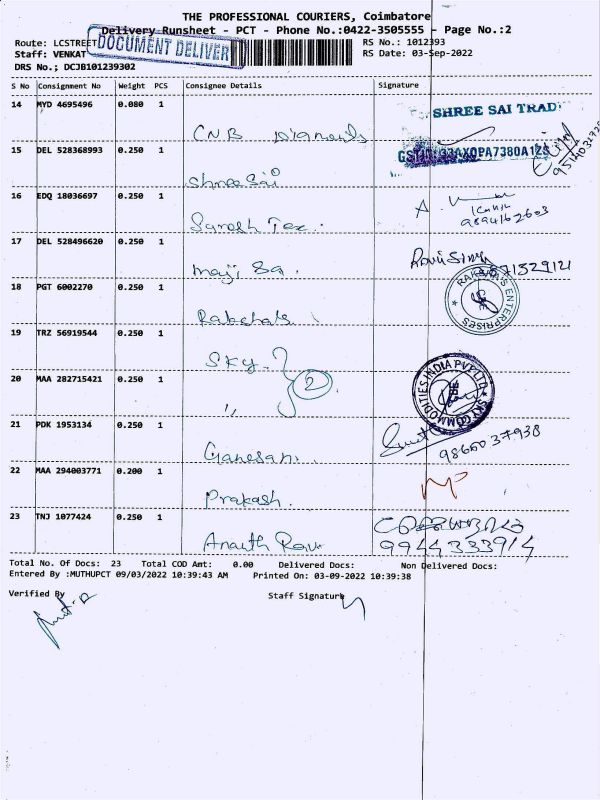 THE PROFESSIONAL COURIERS, Coimbatore
Delivery Runsheet - PCT - Phone No.:0422-3505555 - Page No.:2
Route: LCSTREET RS No.: 1012393
DOCUMENT DELIVER
Staff: VENKAT RS Date: 03-Sep-2022
DRS No.; DCJB101239302
S No Consignment No Weight PCS Consignee Details Signature
14 MYD 4695496 0.080 1
SHREE SAI TRAD
CNB
15 DEL 528368993 0.250 1
Shree Sai
16 EDQ 18036697 0.250 1
A.
9894162603
Suresh Tex.
17 DEL 528496620 0.250 1
18 PGT 6002270 0.250 1
RAKSHA'S ENTERPRISES
19 TRZ 56919544 0.250 1
SKY
20 MAA 282715421 0.250 1
2
"
COMMODITIES INDIA PVT LTD SKY
21 PDK 1953134 0.250 1
9866037938
Ganesan
22 MAA 294003771 0.200 1
Prakash.
23 TNJ 1077424 0.250 1
Ananth Ravi
9944333914
Total No. Of Docs: 23 Total COD Amt: 0.00 Delivered Docs: Non Delivered Docs:
Entered By :MUTHUPCT 09/03/2022 10:39:43 AM Printed On: 03-09-2022 10:39:38
Verified By Staff Signature